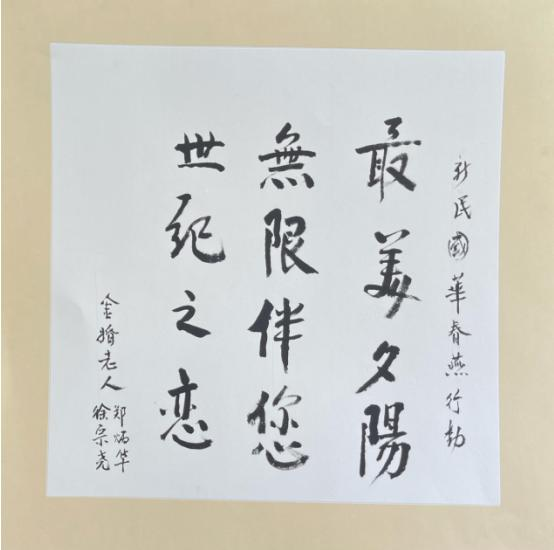 新民國華春燕行動
最美夕陽
無限伴您
世纪之恋
金婚老人
郑炳华
徐宗尧